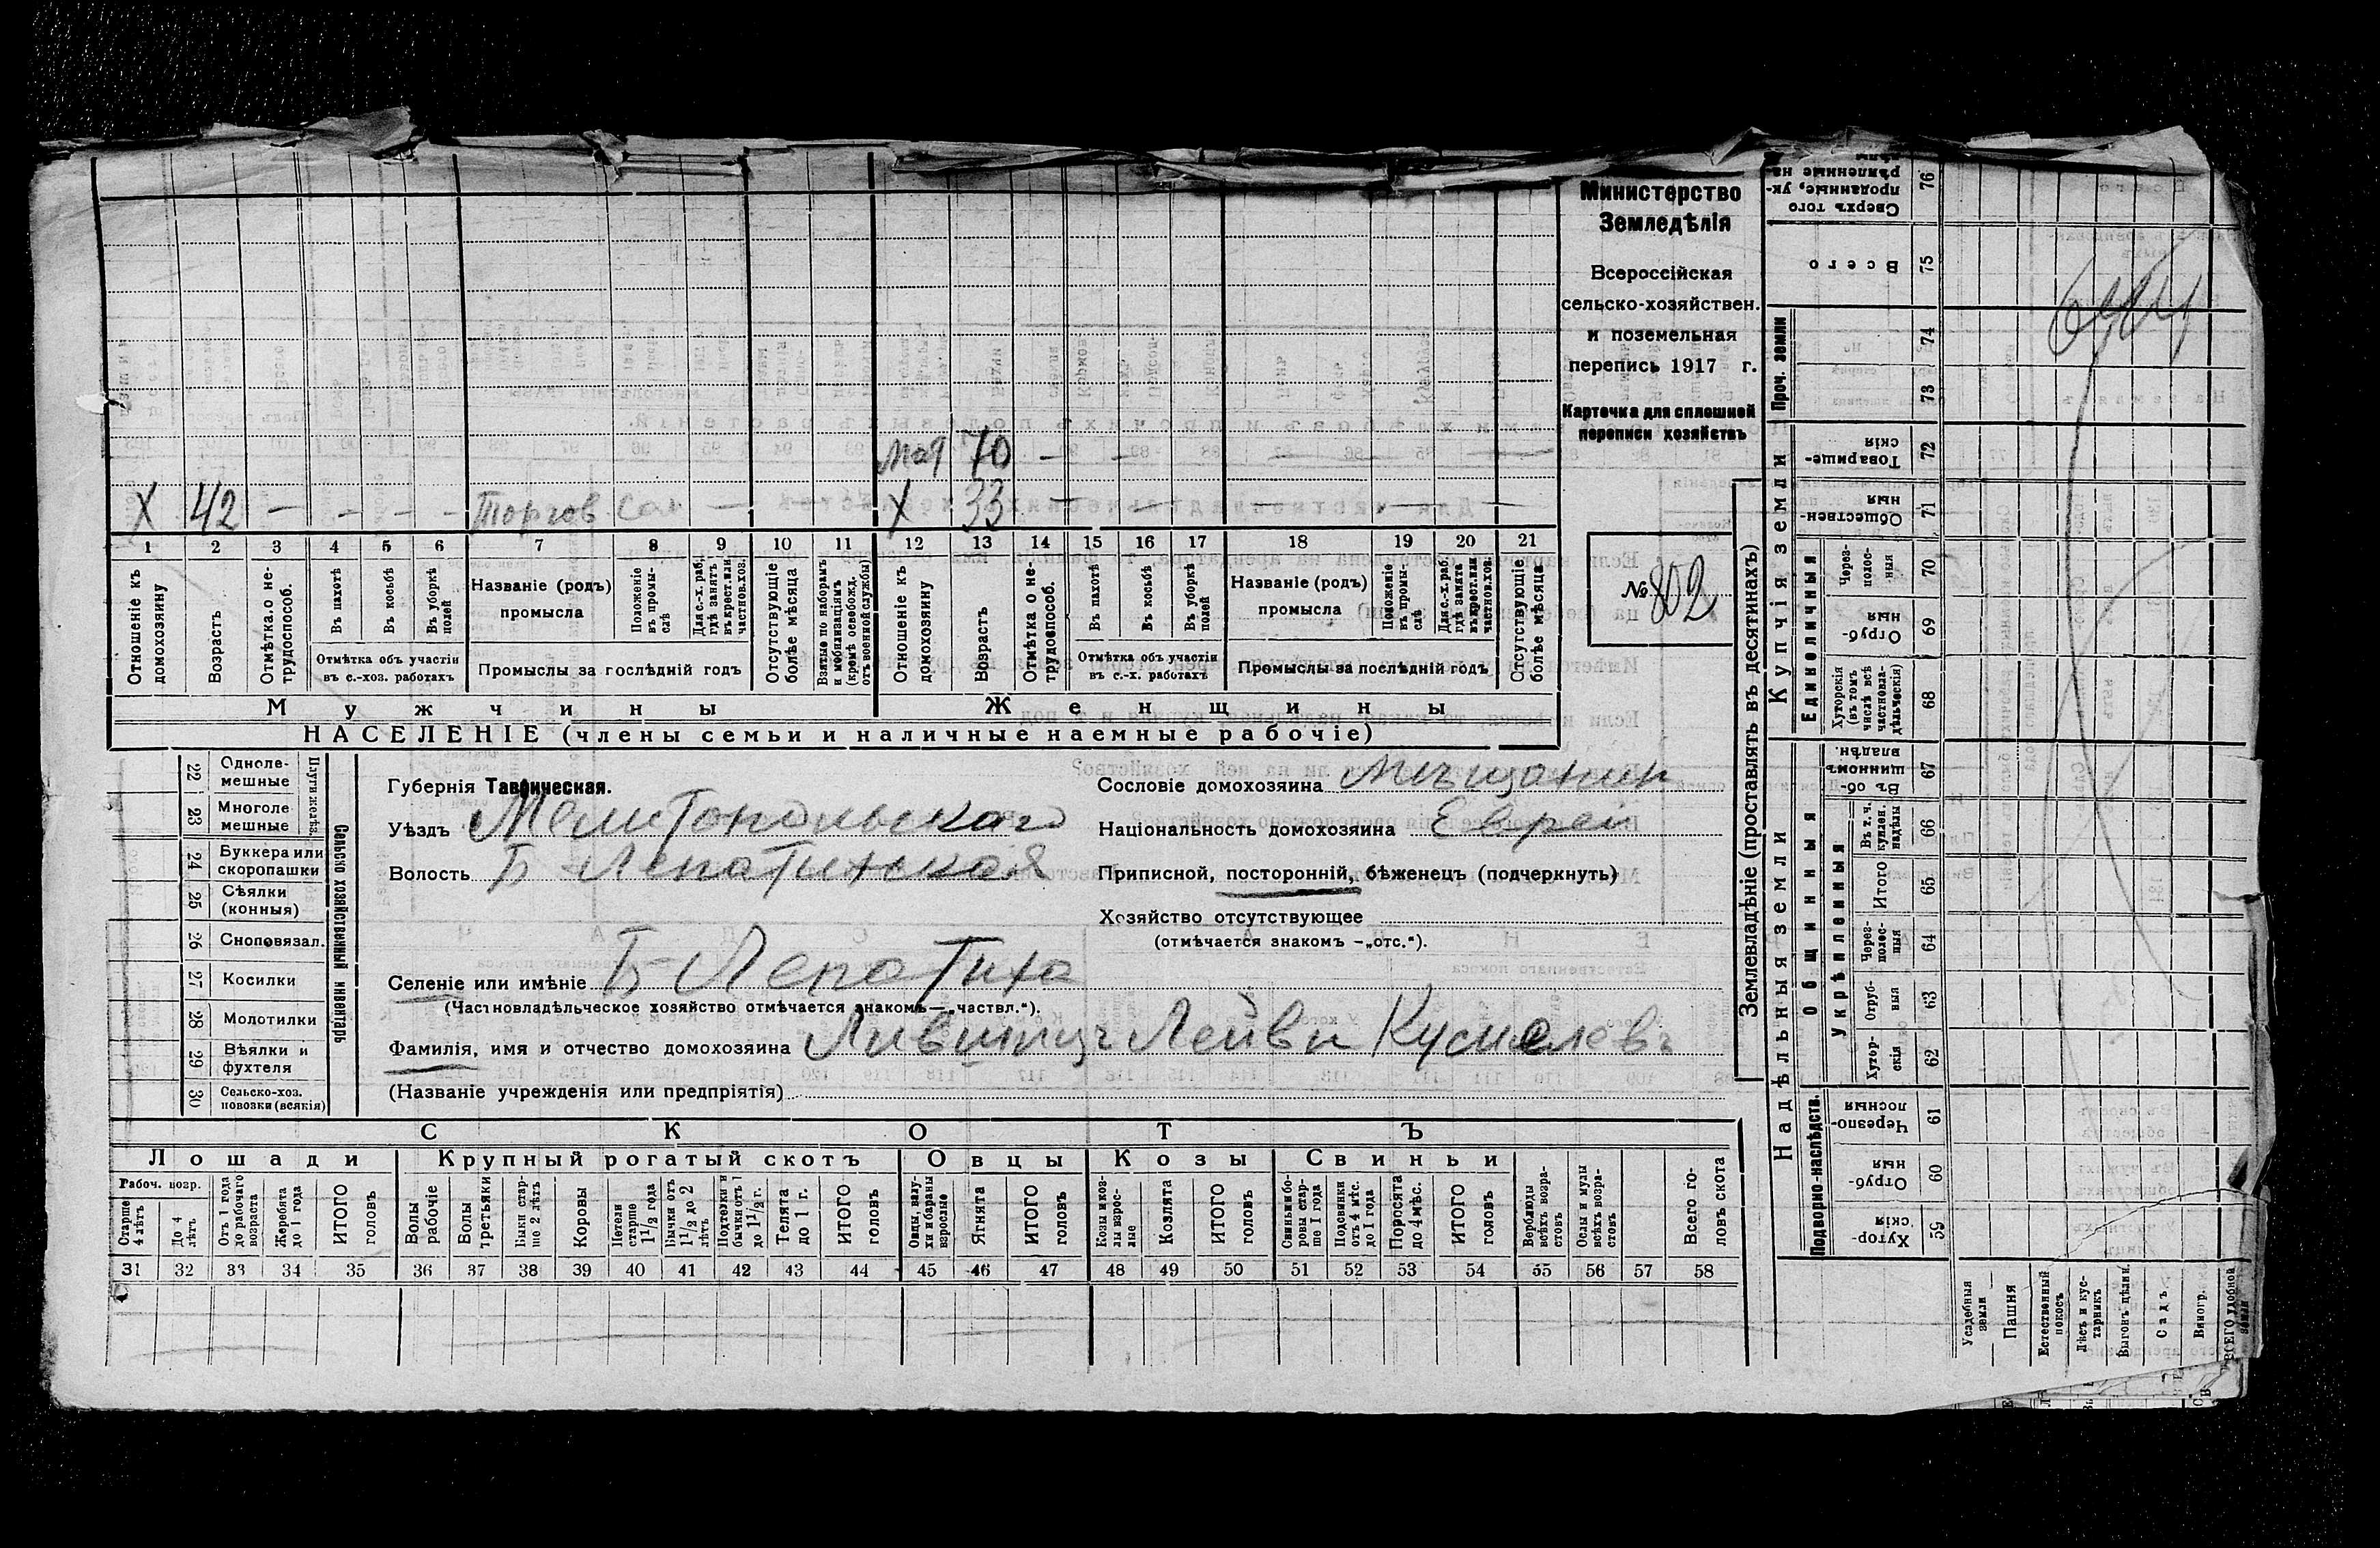 Министерство
Земледѣлія
Всероссійская
сельско-хозяйствен.
и поземельная
перепись 1917 г.
Карточка для сплошной
переписи хозяйствъ
№ 802
мать 70 — —
Х 42 — — — — Торгов — Х 33 — — — —
1 2 3 4 5 6 7 8 9 10 11 12 13 14 15 16 17 18 19 20 21
Отношеніе къ домохозяину
Возрастъ
Отмѣтка о нетрудоспособ.
Въ пахотѣ
Въ косьбѣ
Въ уборкѣ полей
Отмѣтка объ участіи
въ с.-хоз. работахъ
Названіе (родъ)
промысла
Положеніе въ промыслѣ
Для с.-х. раб. гдѣ занятъ въ крест. или частнов. хоз.
Промыслы за послѣдній годъ
Отсутствующіе болѣе мѣсяца
Взятые по наборамъ и мобилизаціямъ (кромѣ освобожд. отъ военной службы)
Отношеніе къ домохозяину
Возрастъ
Отмѣтка о нетрудоспособ.
Въ пахотѣ
Въ косьбѣ
Въ уборкѣ полей
Отмѣтка объ участіи
въ с.-х. работахъ
Названіе (родъ)
промысла
Положеніе въ промыслѣ
Для с.-х. раб. гдѣ занята въ крест. или частнов. хоз.
Промыслы за послѣдній годъ
Отсутствующіе болѣе мѣсяца
Мужчины Женщины
НАСЕЛЕНІЕ (члены семьи и наличные наемные рабочіе)
Сельско хозяйственный инвентарь
Плуги желѣз.
22 Одноле-
мешные
23 Многоле
мешные
24 Буккера или
скоропашки
25 Сѣялки
(конныя)
26 Сноповязал.
27 Косилки
28 Молотилки
29 Вѣялки и
фухтеля
30 Сельско-хоз.
повозки (всякія)
Губернія Таврическая.
Уѣздъ Мелитопольскаго
Волость Б-Лепатихская
Селеніе или имѣніе Б-Лепатиха
(Частновладѣльческое хозяйство отмѣчается знакомъ — „частвл.“).
Фамилія, имя и отчество домохозяина Лившицъ Лейви
(Названіе учрежденія или предпріятія)
Сословіе домохозяина Мѣщанин
Національность домохозяина Еврей
Приписной, посторонній, бѣженецъ (подчеркнуть)
Хозяйство отсутствующее
(отмѣчается знакомъ —„отс.“).
СКОТЪ
Лошади Крупный рогатый скотъ Овцы Козы Свиньи
Рабоч. возр.
Старше 4 лѣтъ
До 4 лѣтъ
Отъ 1 года до рабочаго возраста
Жеребята до 1 года
ИТОГО головъ
Волы рабочіе
Волы третьяки
Быки старше 2 лѣтъ
Коровы
Нетели старше 1 1/2 года
Бычки отъ 1 1/2 до 2 лѣтъ
Подтелки и бычки отъ 1 до 1 1/2 г.
Телята до 1 г.
ИТОГО головъ
Овцы, валухи и бараны взрослые
Ягнята
ИТОГО головъ
Козы и козлы взрослые
Козлята
ИТОГО головъ
Свиньи боровы старше 1 года
Подсвинки отъ 4 мѣс. до 1 года
Поросята до 4 мѣс.
ИТОГО головъ
Верблюды всѣхъ возрастовъ
Ослы и мулы всѣхъ возрастовъ
Всего головъ скота
31 32 33 34 35 36 37 38 39 40 41 42 43 44 45 46 47 48 49 50 51 52 53 54 55 56 57 58
Землевладѣніе (проставлять въ десятинахъ)
Надѣльныя земли
Купчія земли
Проч. земли
Подворно-наслѣдств.
Общинныя
Укрѣпленныя
Единоличныя
Сверхъ того проданные, ук- 76
Всего 75
74
73
Товарищескія 72
Общественныя 71
Черезполосныя 70
Отрубныя 69
Хуторскія (въ томъ числѣ всѣ частновладѣльческія) 68
Въ общинномъ владѣн. 67
Въ т. ч. куплен. надѣлы 66
Итого 65
Черезполосныя 64
Отрубныя 63
Хуторскія 62
Черезполосныя 61
Отрубныя 60
Хуторскія 59
Усадебныя земли
Пашня
Естественный покосъ
Лѣсъ и кустарникъ
Выгонъ цѣлин.
Садъ
Виногр.
ВСЕГО удобной земли